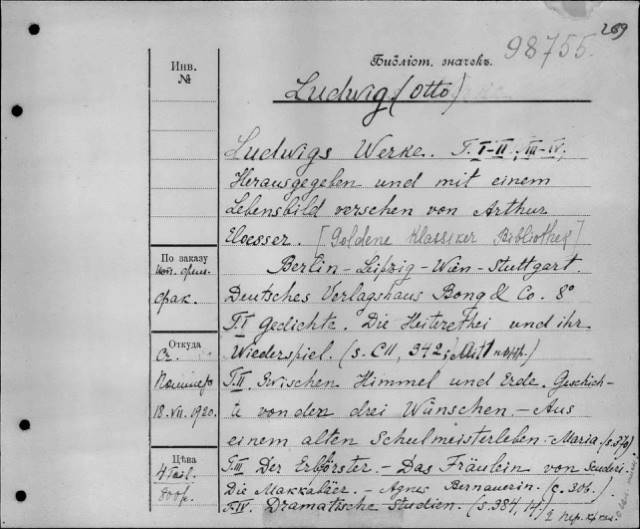 269
98755.
Библіот. значекъ.
Инв.
№
Ludwig (Otto)
Ludwigs Werke. T. I-II; III-IV,
Herausgegeben und mit einem
Lebensbild versehen von Arthur
Eloesser. [Goldene Klassiker Bibliothek]
По заказу
ист. фил.
фак.
Berlin – Leipzig – Wien – Stuttgart.
Deutsches Verlagshaus Bong & Co. 8°
T.I Gedichte. Die Heiterethei und ihr
Откуда
Wiederspiel. (S. CII, 342; Mit 1 портр.)
T.II. Zwischen Himmel und Erde. Geschich-
18. VII. 1920.
te von den drei Wünschen. – Aus
einem alten Schulmeisterleben. Maria (S. 376)
Цѣна
4 Teil.
800 р.
T.III. Der Erbförster. – Das Fräulein von Scuderi.
Die Makkabäer. – Agnes Bernauerin. (с. 306.)
T.IV. Dramatische Studien. (S. 384, 14.)